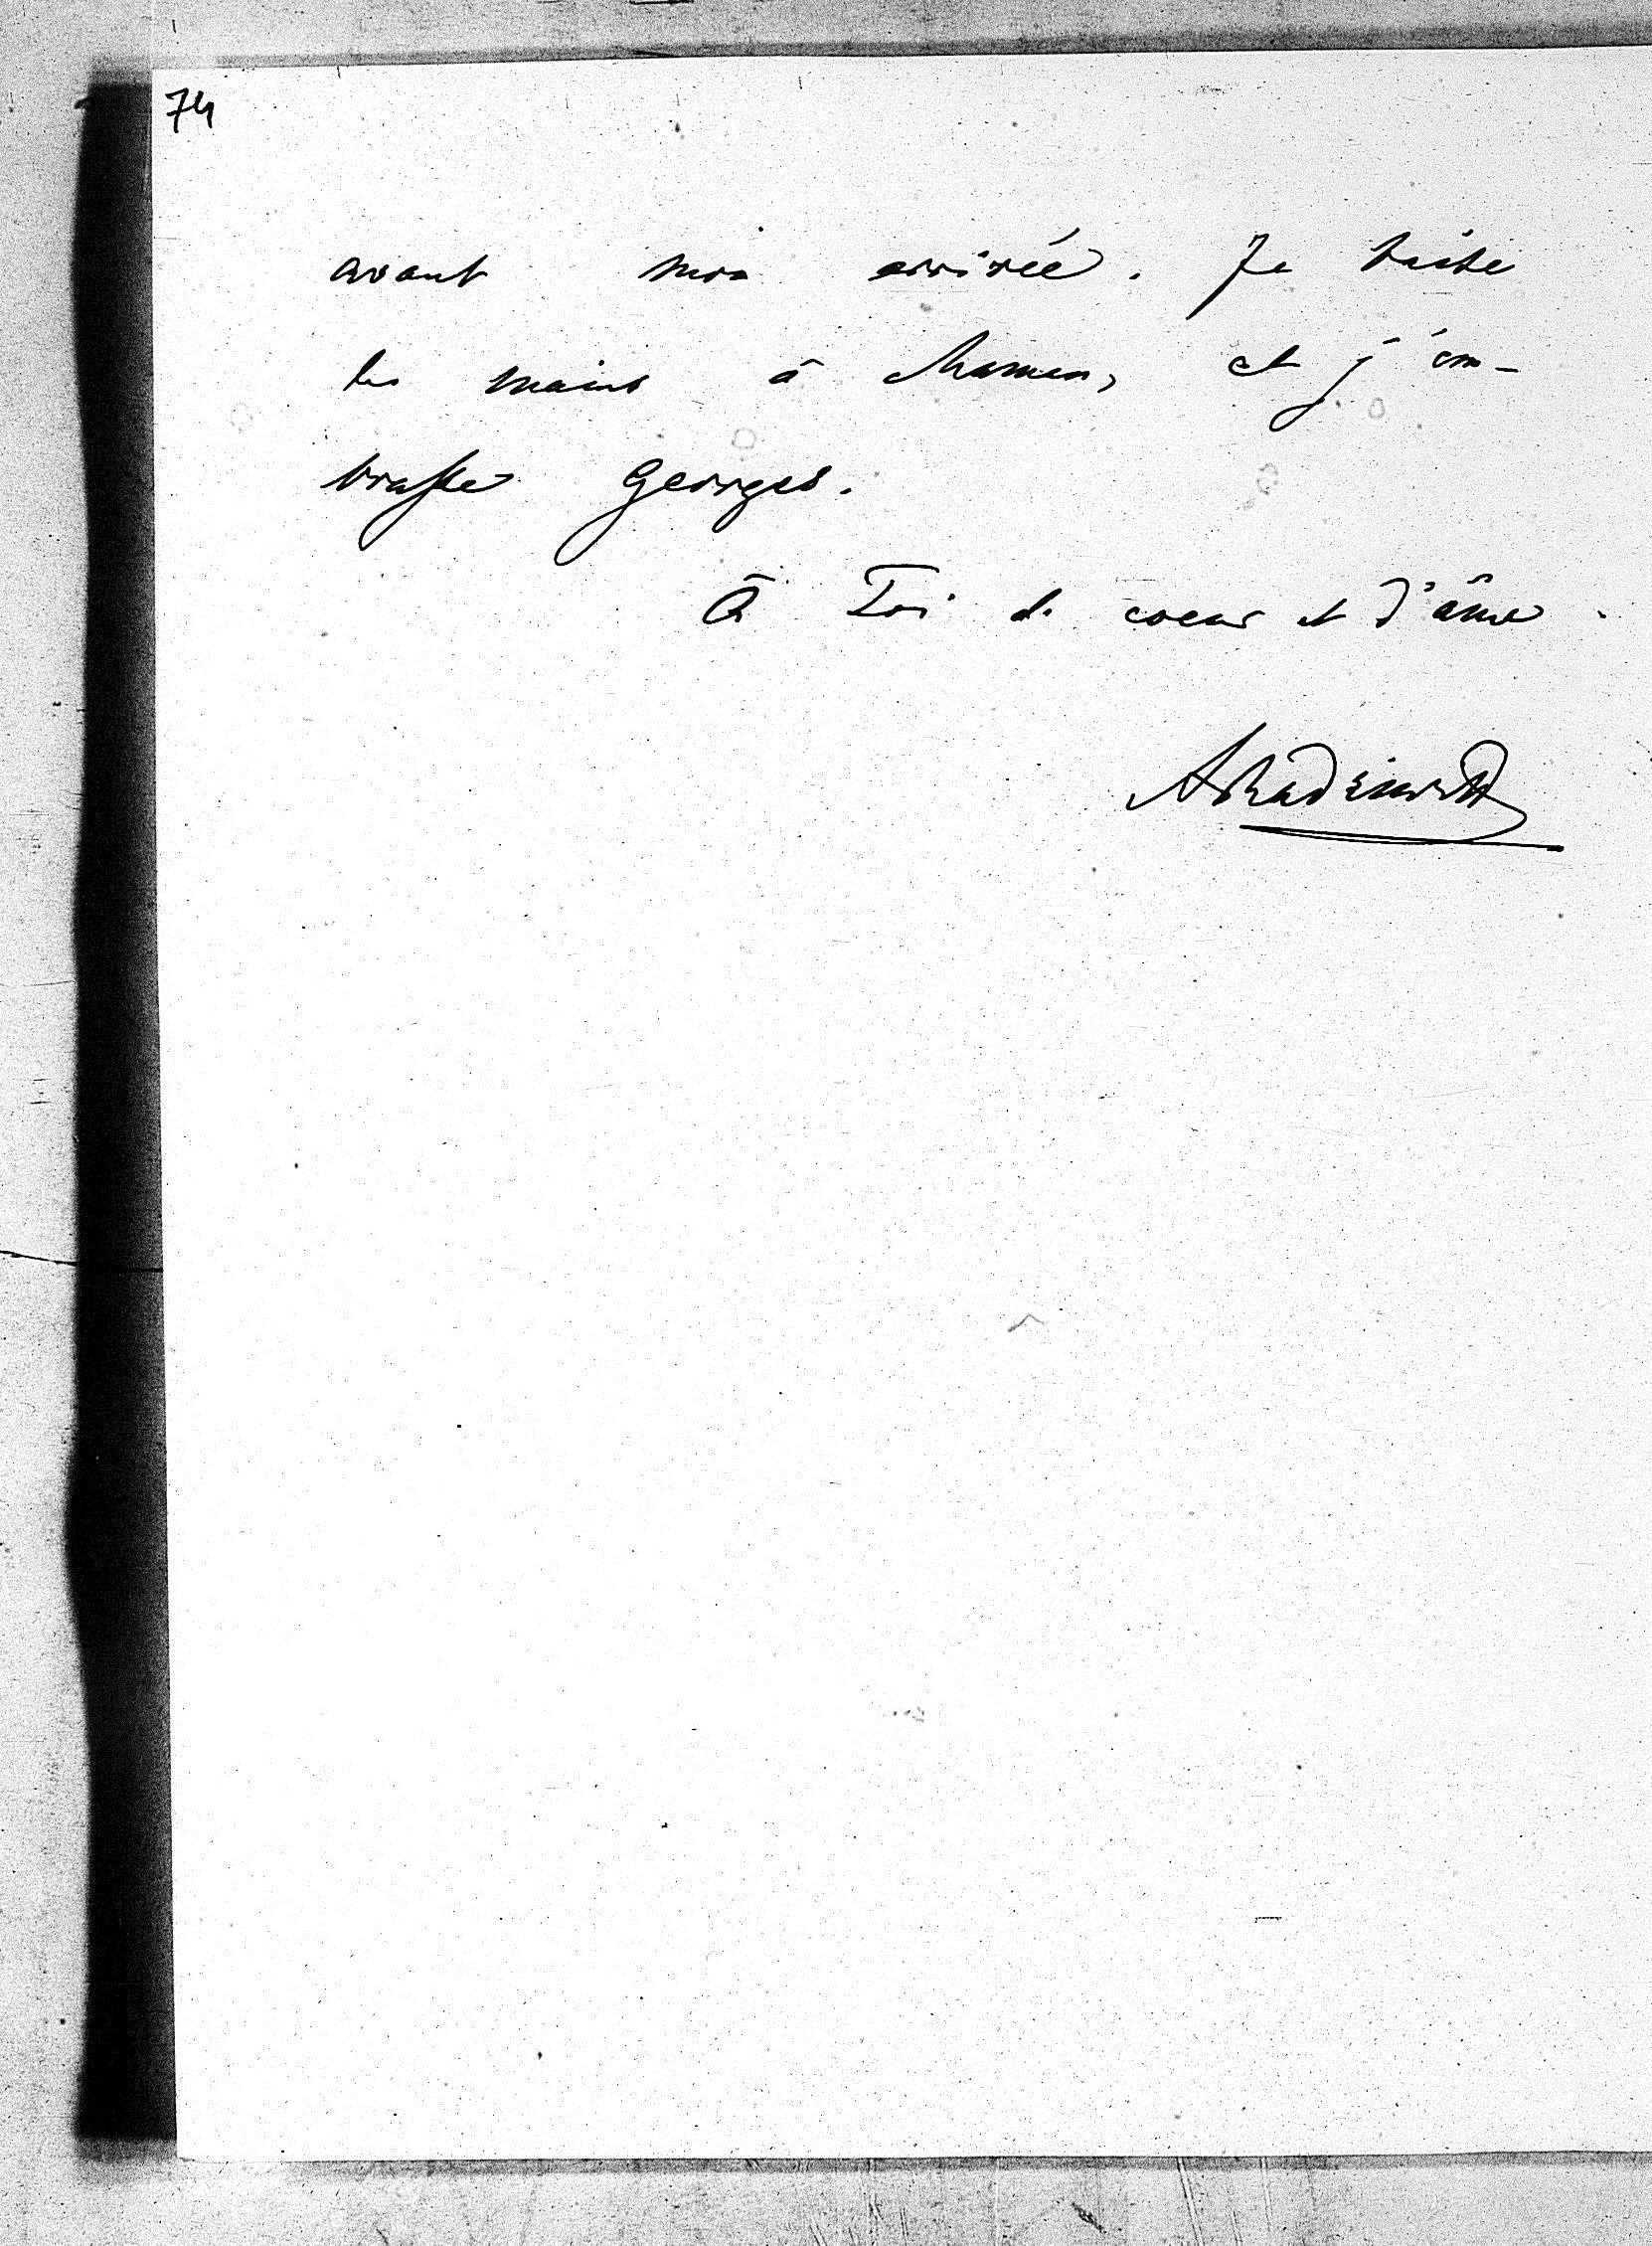 74
avant mon arrivée. Je baise
les mains à Maman, et j'em-
brasse Georges.
À Toi de coeur et d'âme.